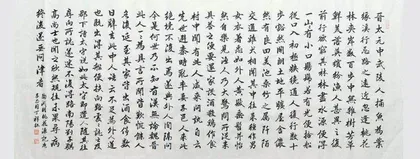 晉太元中武陵人捕魚為業
緣溪行忘路之遠近忽逢桃花
林夾岸數百步中無雜樹芳草
鮮美落英繽紛漁人甚異之復
前行欲窮其林林盡水源便得
一山山有小口髣髴若有光便捨船
從口入初極狹纔通人復行數十
步豁然開朗土地平曠屋舍儼
然有良田美池桑竹之屬阡陌
交通雞犬相聞其中往來種作男
女衣著悉如外人黃髮垂髫並怡
然自樂見漁人乃大驚問所從來
具答之便要還家設酒殺雞作食
村中聞有此人咸來問訊自云
先世避秦時亂率妻子邑人來此
絕境不復出焉遂與外人間隔問
今是何世乃不知有漢無論魏晉
此人一一為具言所聞皆歎惋餘人
各復延至其家皆出酒食停數
日辭去此中人語云不足為外人道
也既出得其船便扶向路處處誌之
及郡下詣太守說如此太守即遣人隨其往
尋向所誌遂迷不復得路南陽劉子驥
高尚士也聞之欣然規往未果尋病
終後遂無問津者